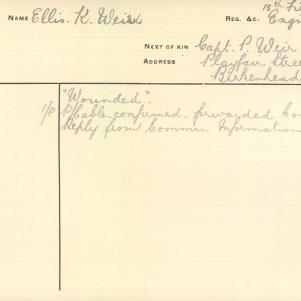 NAME Ellis. K. Weir REG. &C. 15th Fi
Engi
NEXT OF KIN Capt. P. Weir
ADDRESS Playfair Stree
Birkenhead
"Wounded".
1/P P/Cable. confirmed. forwarded Co
Reply from Commis. Information